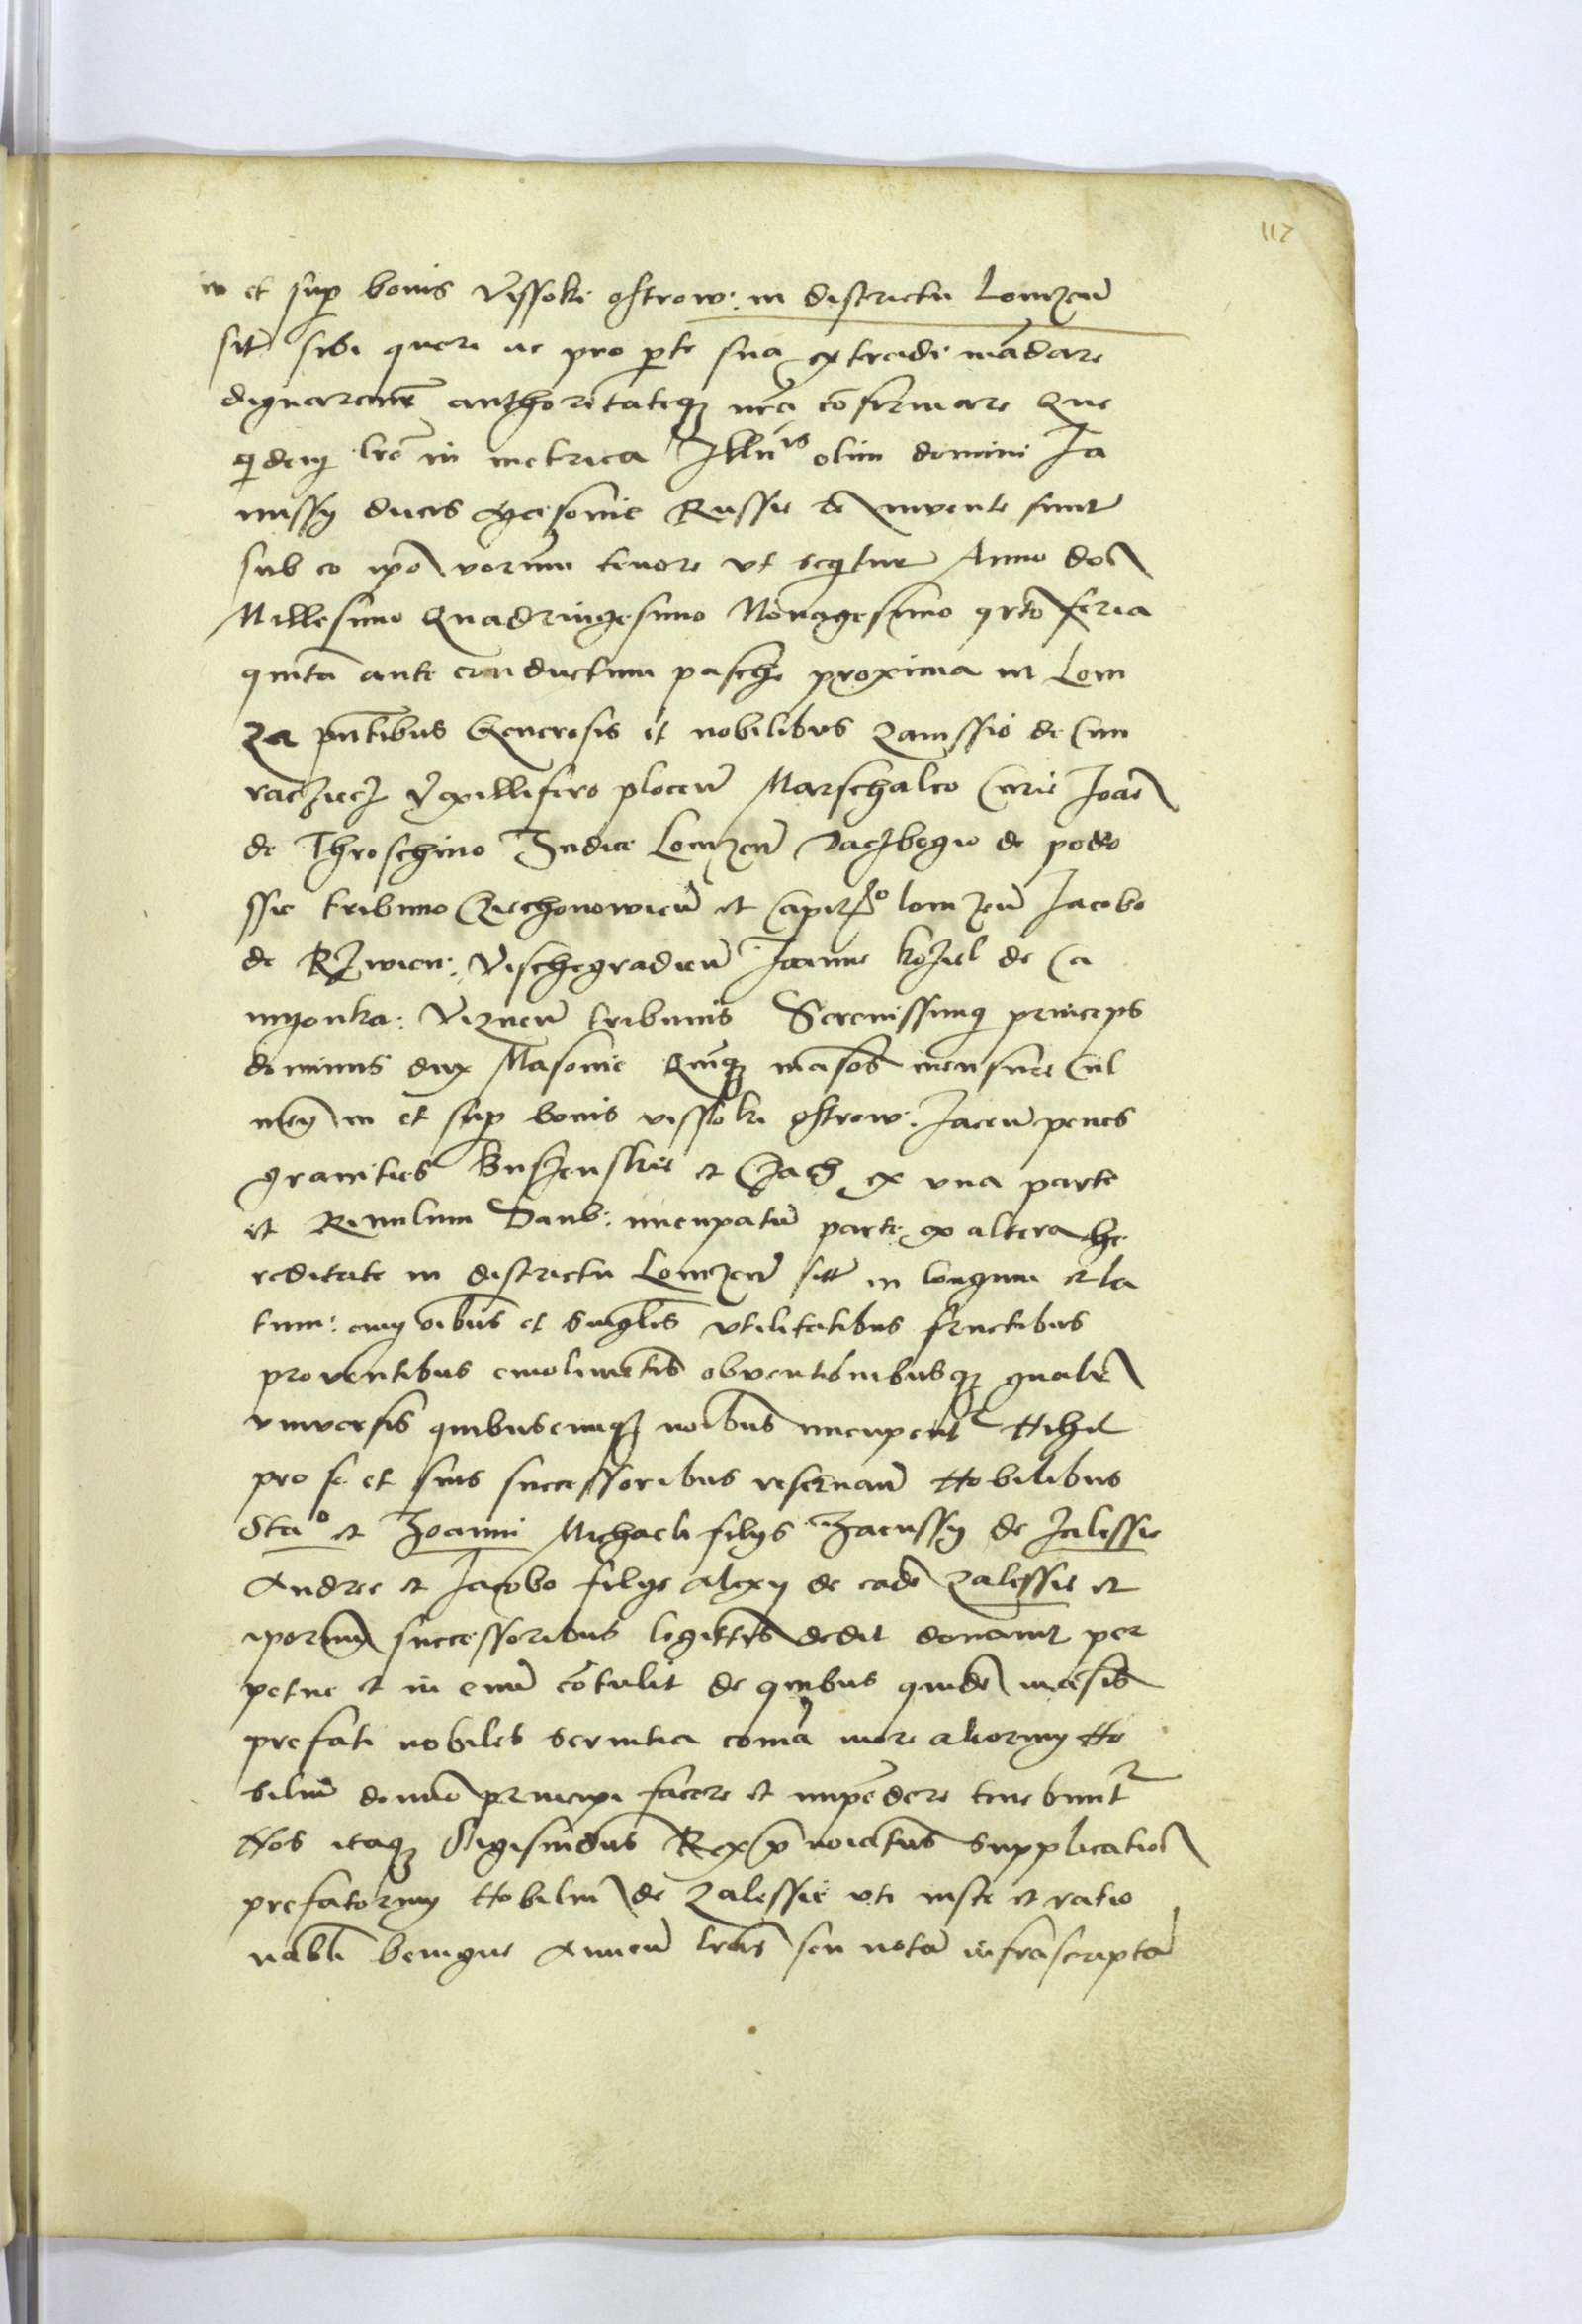 117
in et sup bonis Vissoki ostrow: in districtu Lomzeñ
sit̄ sibi queri ac pro pte sua extradi mādare
dignaremr̄ authoritateq; nrā cōfirmare Que
qdem lre in metrica Illuris olim domini Ja
nussy ducis Masovie Russie &c invente sunt
sub eo ipo verum tenore vt seqitur Anno doī
Millesimo Quadringesimo Nonagesimo qrto feria
quinta ante conductum pasche proxima in Lom
za pn̄tibus Generosis et nobilibus Zaussio de Cun
racziecz Vexillifero plocen̄ Marschalco Curie Joañ
de Throschino Judice Lomzen̄ Daczbogio de poddo
ssie tribuno Cziechonowień et Capito lomzen̄ Jacobo
de Rziwien: Vischegradien̄ Joanne koziel de Ca
myonka: Viznen̄ tribunis Serenissimq princeps
dominus dux Masovie Quīq; māsos mensure Cul
meñ in et sup bonis vissoki ostrow: Jaceñ penes
granities Buszenskie et Czach ex vna parte
et Rivulum Danb: nuncupatū parte ex altera he
reditate in districtu Lomzen̄ sitt̄ in longum et la
tum: cum oībus et singlis vtilitatibus fructibus
proventibus emolimētis obventionibusq; gnalr̄
vniversis quibuscumq; noībus nuncupent̄ Nihil
pro se et suis successoribus reservañ Nobilibus
Stao et Joanni Michaeli filys Jacussy de Zalessie
Andree et Jacobo filys Alexy de eadē Zalessie et
iporum successoribus legittīs dedit donavit per
petue et in evū cōtulit de quibus quidē māsis
prefati nobiles servitia comīa more aliorum No
bilium domīo principi facere et impēdere tenebunt̄
Nos itaq; Sigismūdus Rex pnoīatus supplicatioī
prefatorum Nobiliū de Zalessie vti iuste et ratio
nabli benigne Annueñ lras seu notā infrascriptā